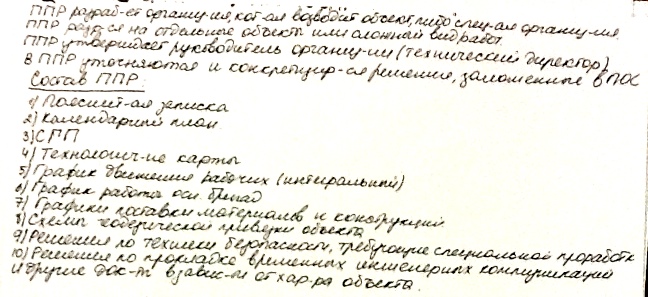 ППР разраб-ет организ-ия, кот-ая возводит объект, либо спец-ая организ-ия.
ППР раз-ся на отдельные объекты или сложный вид работ.
ППР утверждает руководитель организ-ии (технический директор)
В ППР уточняются и конкретизир-ся решения, заложенные в ПОС
Состав ППР:
1) Пояснит-ая записка
2) Календарный план
3) СГП
4) Технологич-ие карты
5) График движения рабочих (интегральный)
6) График работы осн. бригад
7) Графики поставки материалов и конструкций
8) Схемы геодезической привязки объекта
9) Решения по технике безопасности, требующие специальной проработк
10) Решения по прокладке временных инженерных коммуникаций
и другие док-ты в завис-ти от хар-ра объекта.